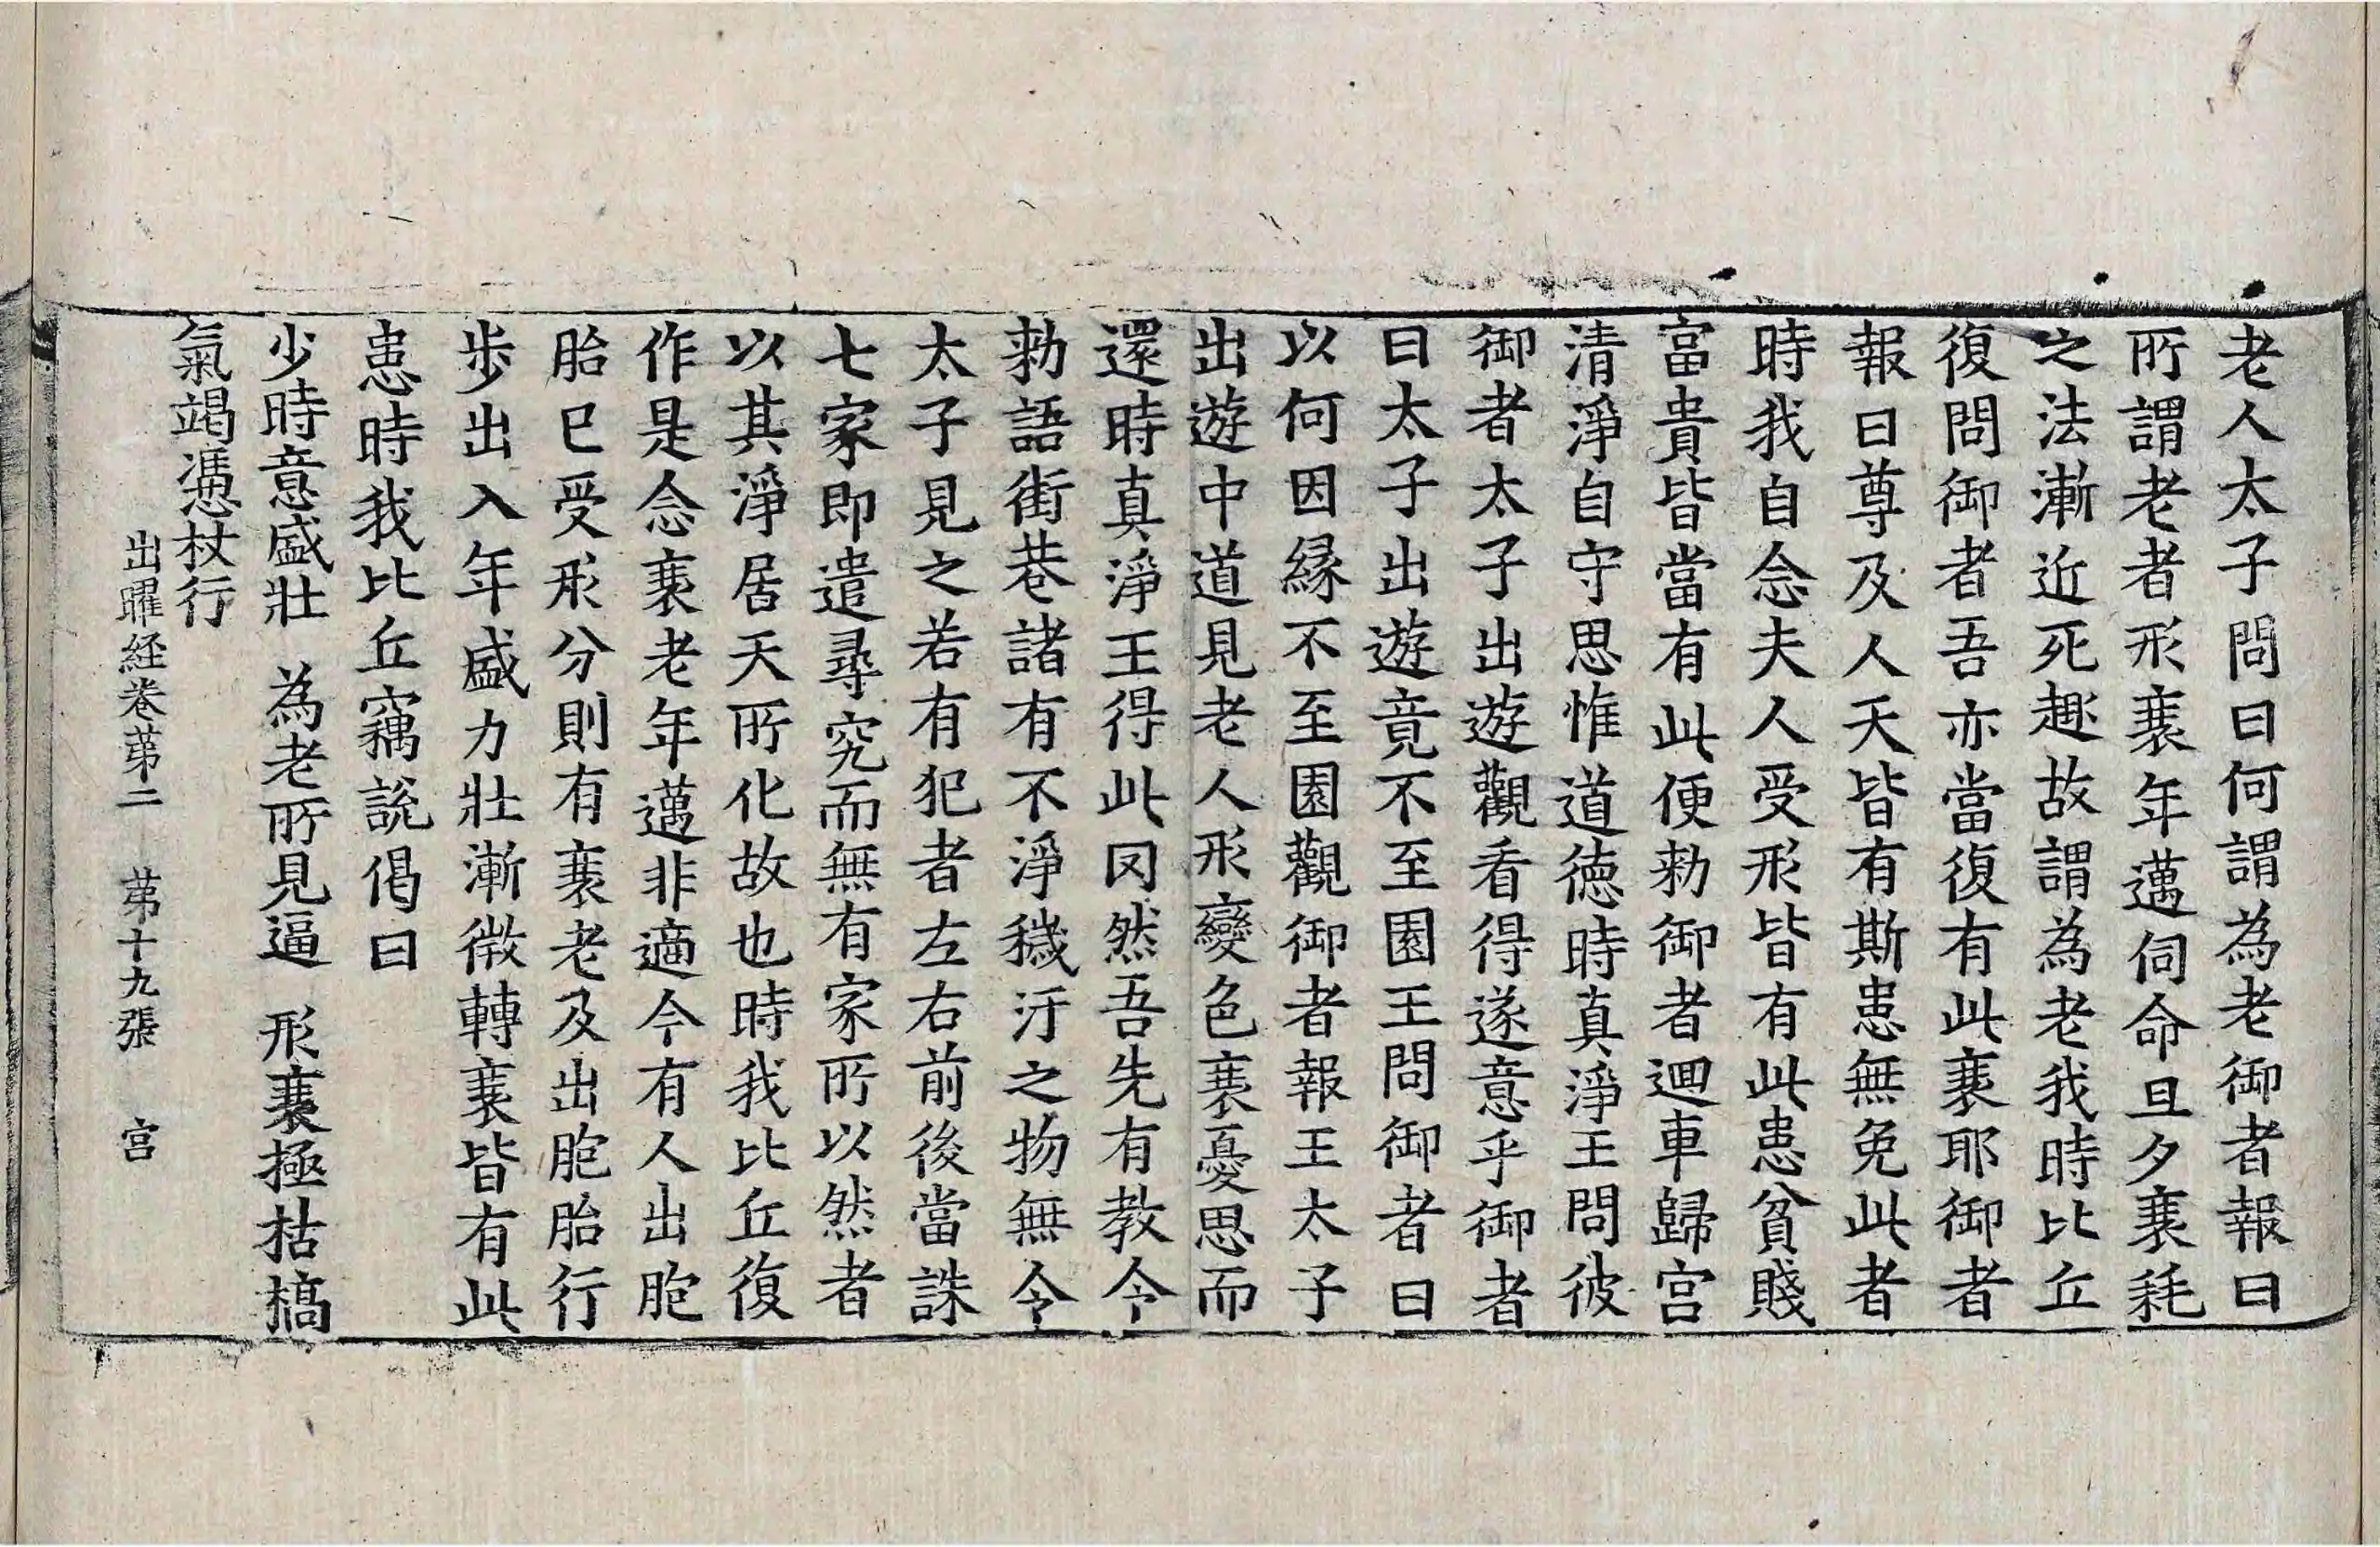 老人太子問曰何謂為老御者報曰
所謂老者形衰年邁伺命旦夕衰耗
之法漸近死趣故謂為老我時比丘
復問御者吾亦當復有此衰耶御者
報曰尊及人天皆有斯患無免此者
時我自念夫人受形皆有此患貧賤
富貴皆當有此便勑御者迴車歸宮
清淨自守思惟道德時真淨王問彼
御者太子出遊觀看得遂意乎御者
曰太子出遊竟不至園王問御者曰
以何因緣不至園觀御者報王太子
出遊中道見老人形變色衰憂思而
還時真淨王得此罔然吾先有教令
勑語街巷諸有不淨穢汙之物無令
太子見之若有犯者左右前後當誅
七家即遣尋究而無有家所以然者
以其淨居天所化故也時我比丘復
作是念衰老年邁非適今有人出胞
胎已受形分則有衰老及出胞胎行
步出入年盛力壯漸微轉衰皆有此
患時我比丘竊說偈曰
少時意盛壯　為老所見逼　形衰極枯槁
氣竭憑杖行
出曜経卷苐二　苐十九張　宫